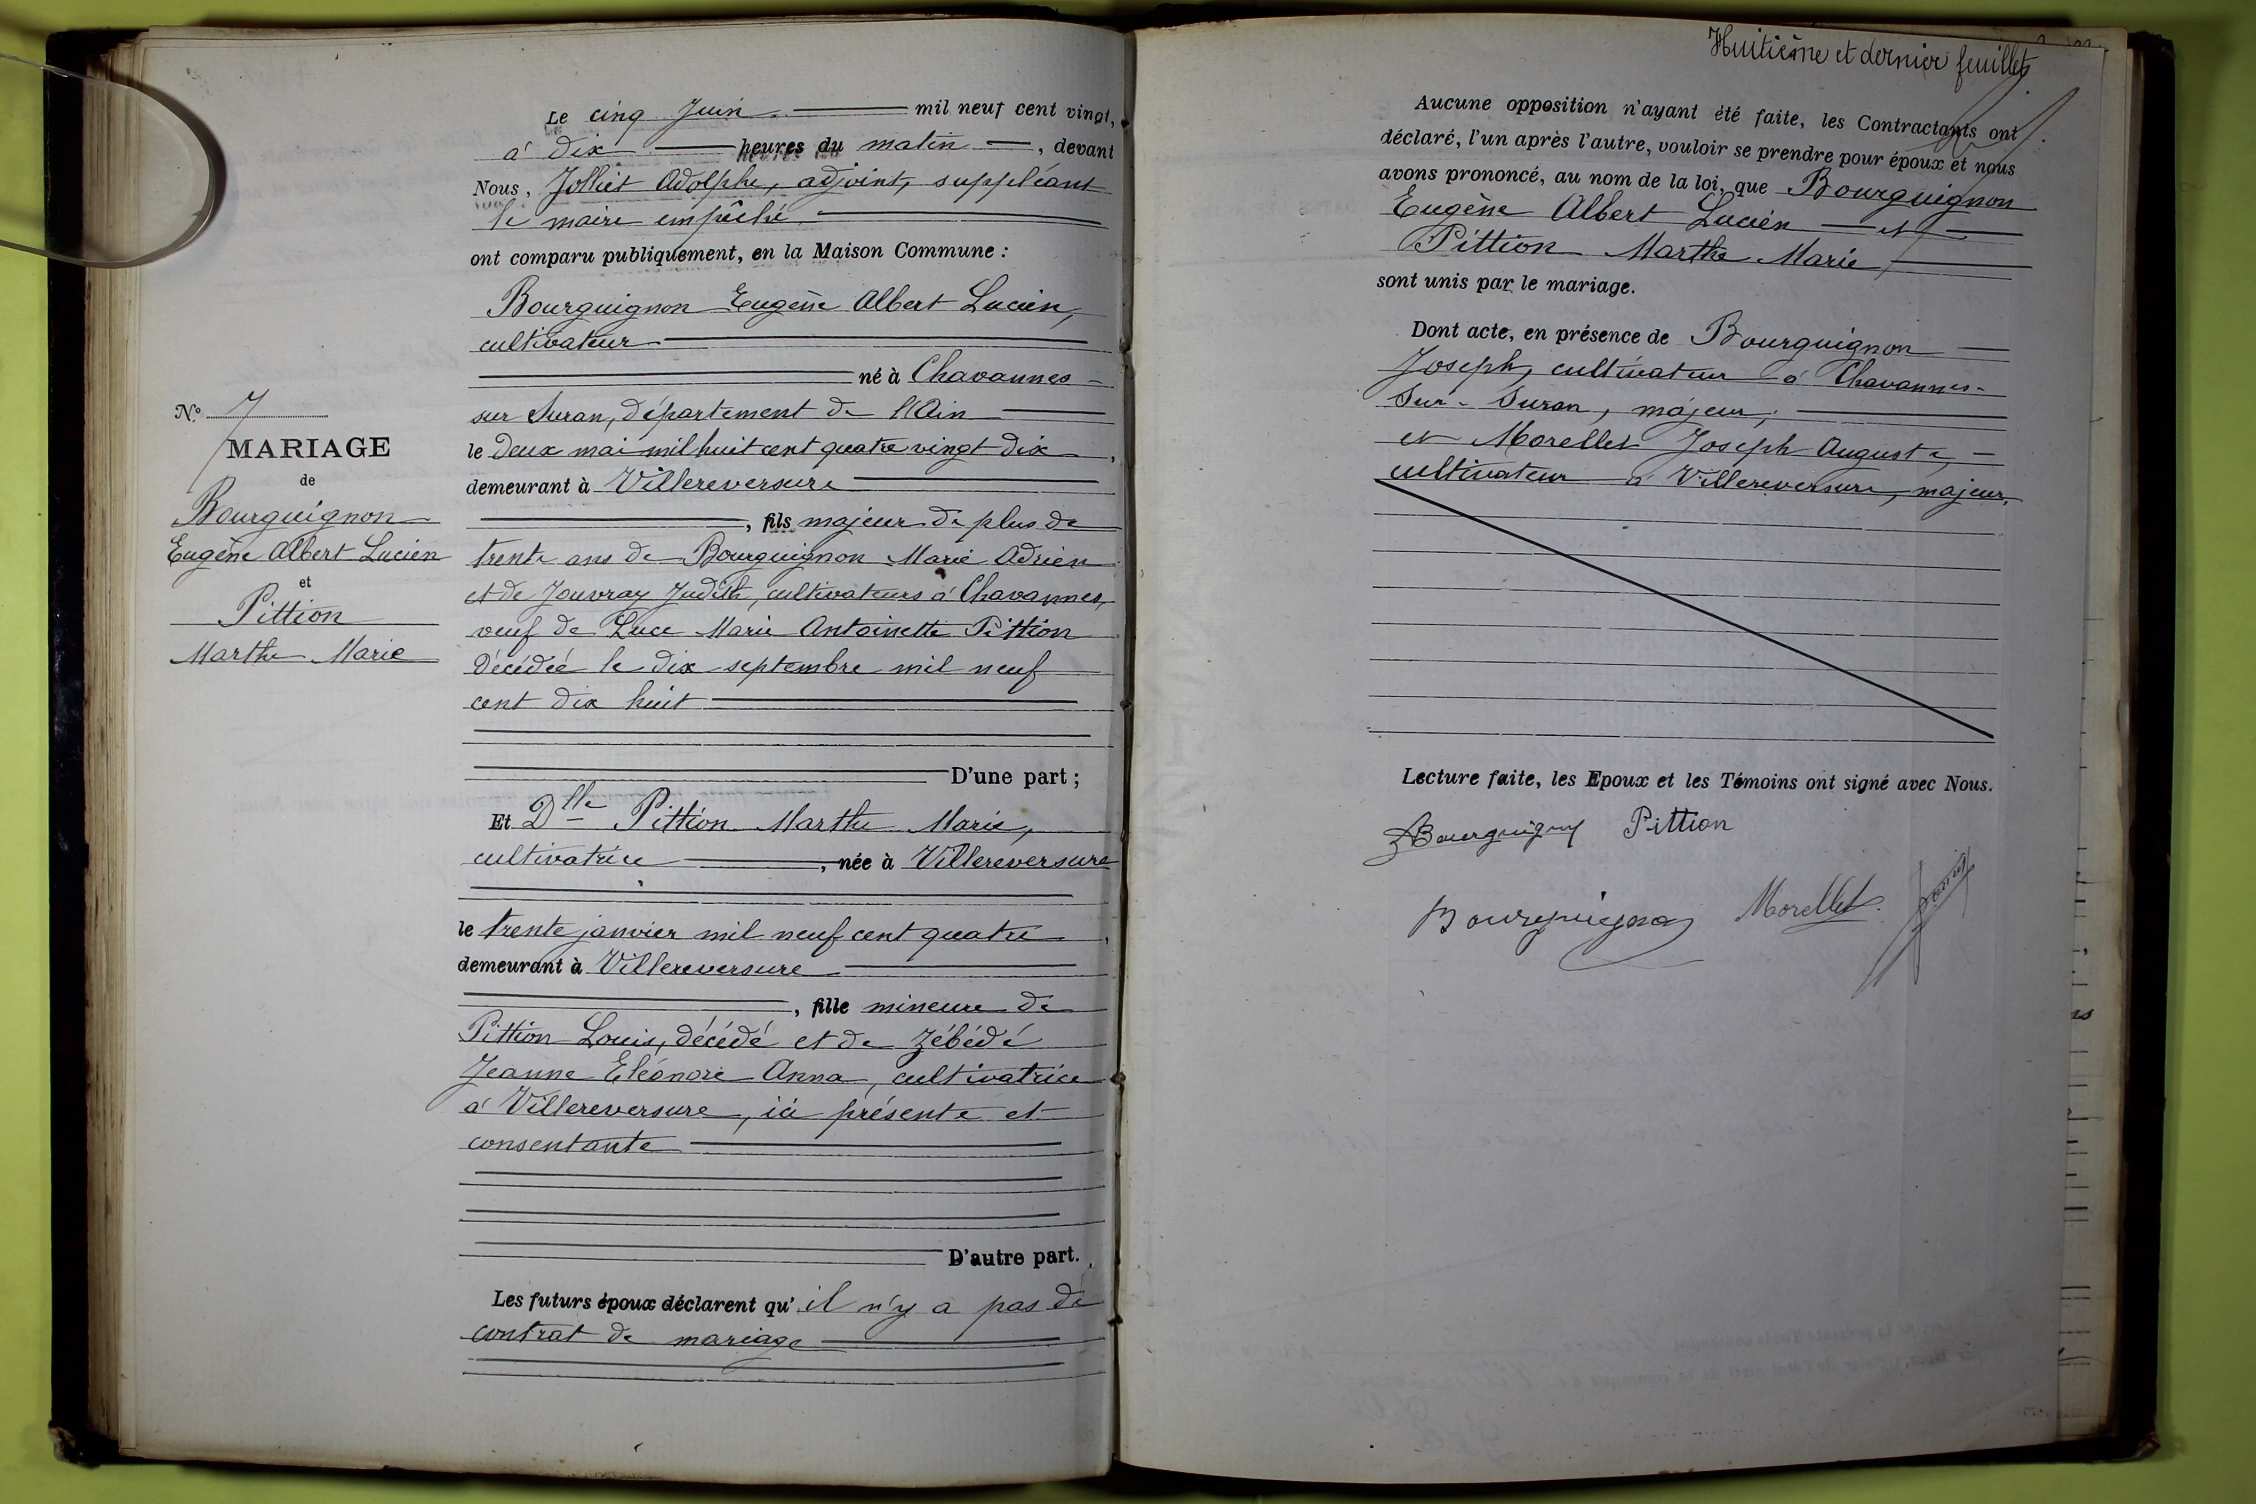 Le cinq Juin mil neuf cent vingt,
à dix heures du matin, devant
Nous, Jolliet Adolphe, adjoint, suppléant
le maire empêché
ont comparu publiquement, en la Maison Commune :
Bourguignon Eugène Albert Lucien,
cultivateur
né à Chavannes-
sur Suran, département de l'Ain
le deux mai mil huit cent quatre vingt dix,
demeurant à Villereversure
, fils majeur de plus de
trente ans de Bourguignon Marie Adrien
et de Jouvray Judith, cultivateurs à Chavannes,
veuf de Luce Marie Antoinette Pittion
décédée le dix septembre mil neuf
cent dix huit
D'une part ;
Et Dlle Pittion Marthe Marie,
cultivatrice, née à Villereversure
le trente janvier mil neuf cent quatre,
demeurant à Villereversure
, fille mineure de
Pittion Louis, décédé et de Zébédé
Jeanne Eléonore Anna, cultivatrice
à Villereversure, ici présente et
consentante
D'autre part.
Les futurs époux déclarent qu'il n'y a pas de
contrat de mariage
No 7
MARIAGE
de
Bourguignon
Eugène Albert Lucien
et
Pittion
Marthe Marie
Huitième et dernier feuillet
Aucune opposition n'ayant été faite, les Contractants ont
déclaré, l'un après l'autre, vouloir se prendre pour époux et nous
avons prononcé, au nom de la loi, que Bourguignon
Eugène Albert Lucien et
Pittion Marthe Marie,
sont unis par le mariage.
Dont acte, en présence de Bourguignon
Joseph, cultivateur à Chavannes-
Sur-Suran, majeur,
et Morellet Joseph Auguste,
cultivateur à Villereversure, majeur.
Lecture faite, les Epoux et les Témoins ont signé avec Nous.
Bourguignon Pittion
Bourguignon Morellet